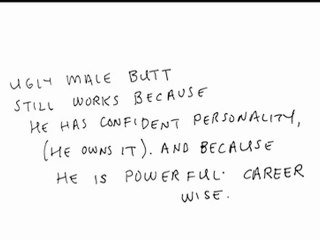 UGLY MALE BUTT
STILL WORKS BECAUSE
HE HAS CONFIDENT PERSONALITY,
(HE OWNS IT). AND BECAUSE
HE IS POWERFUL. CAREER
WISE.